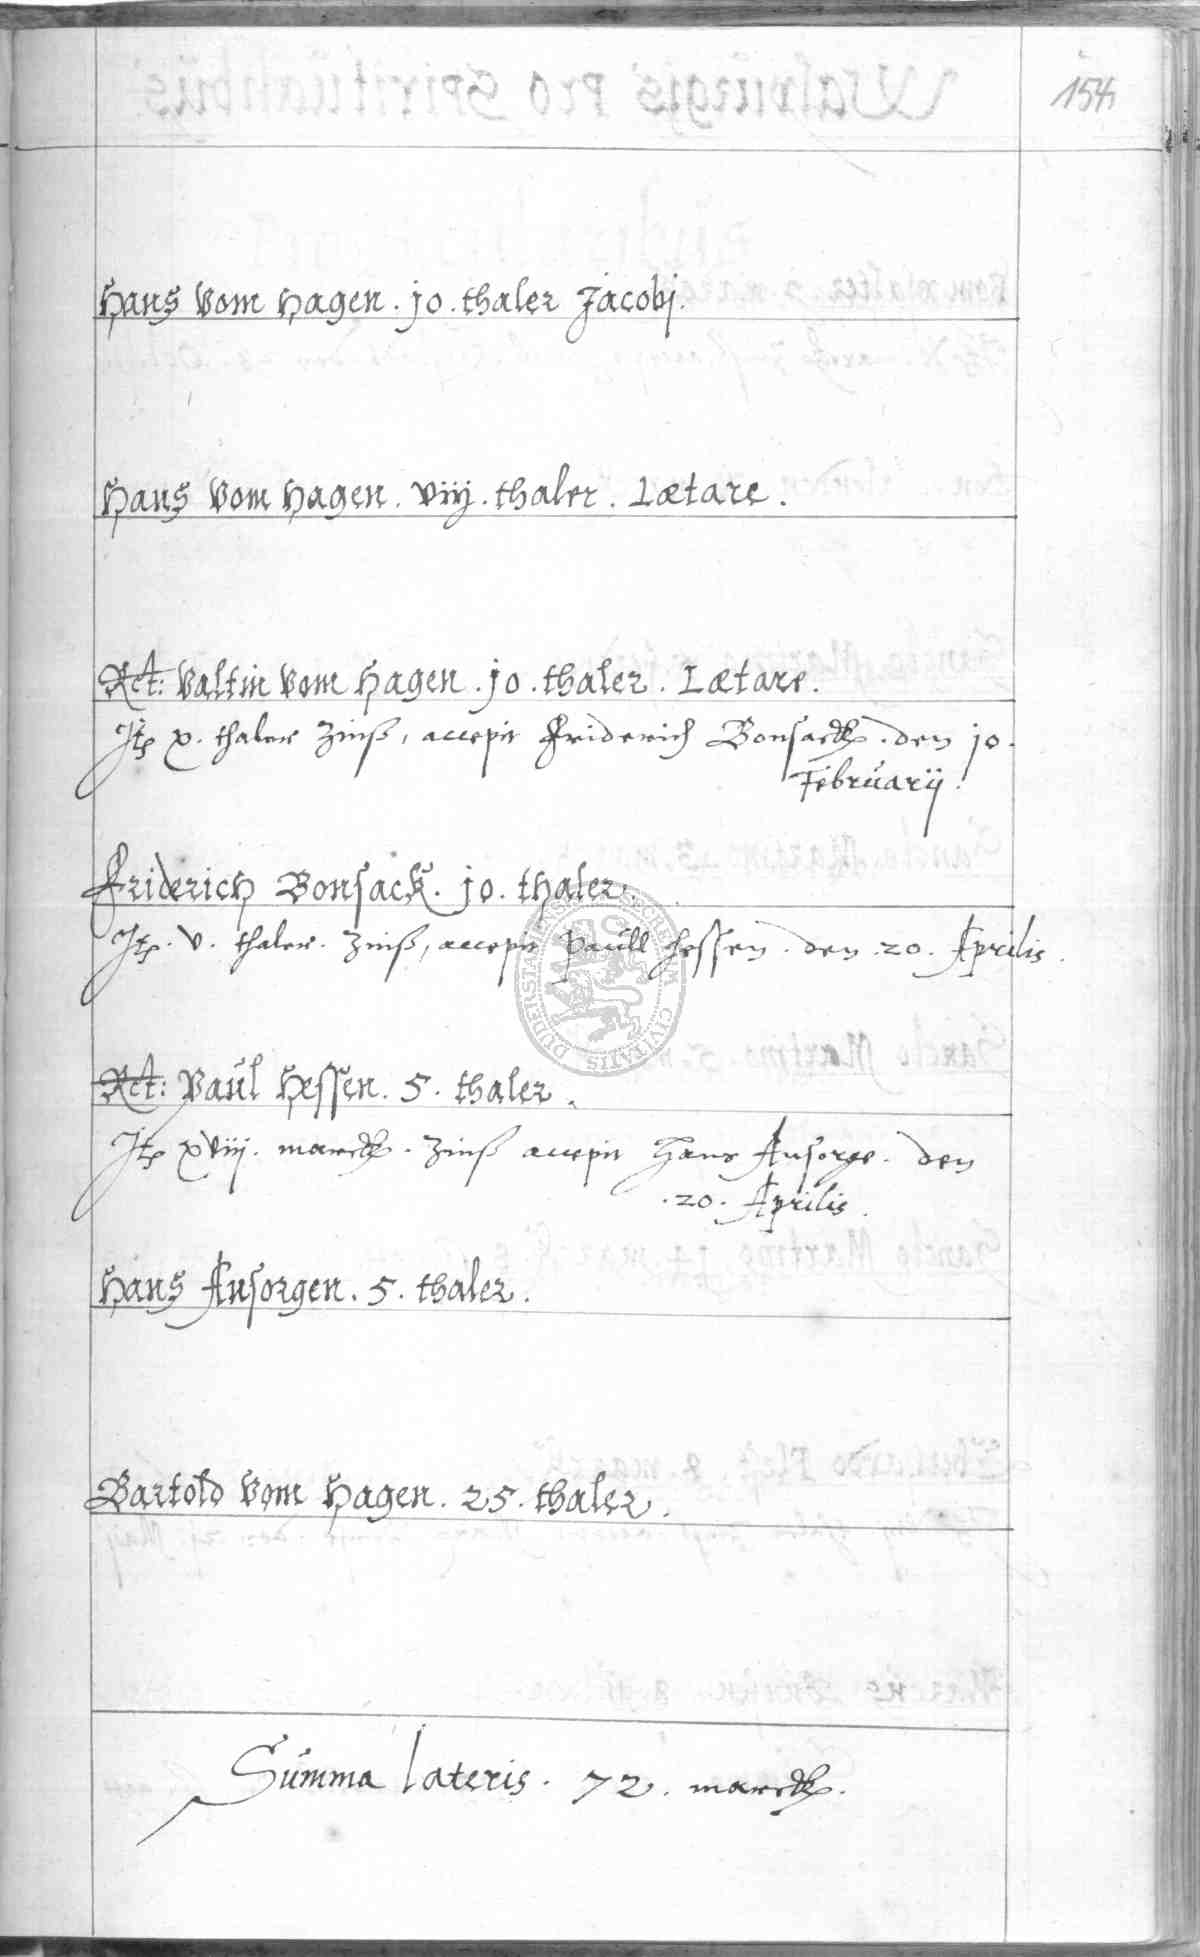 154
Hans Vom Hagen . jo . thaler Jacobj .
Hans Vom Hagen . viij . thaler . Lætare .
Rct: Valtin Vom Hagen . jo . thaler . Lætare .
Jt. x . thaler Zinß , accepit Friderich Bonsack . den jo .
Februarij .
Friderich Bonsack . jo . thaler .
Jt. v . thaler . Zinß , accepit Paull Hessen . den . 20 . Aprilis .
Rct: Paul Hessen . 5 . thaler .
Jt. xviij . marck . Zinß accepit Hans Ansorge . den
. 20 . Aprilis .
Hans Ansorgen . 5 . thaler .
Bartold Vom Hagen . 25 . thaler .
Summa lateris . 72 . marck .